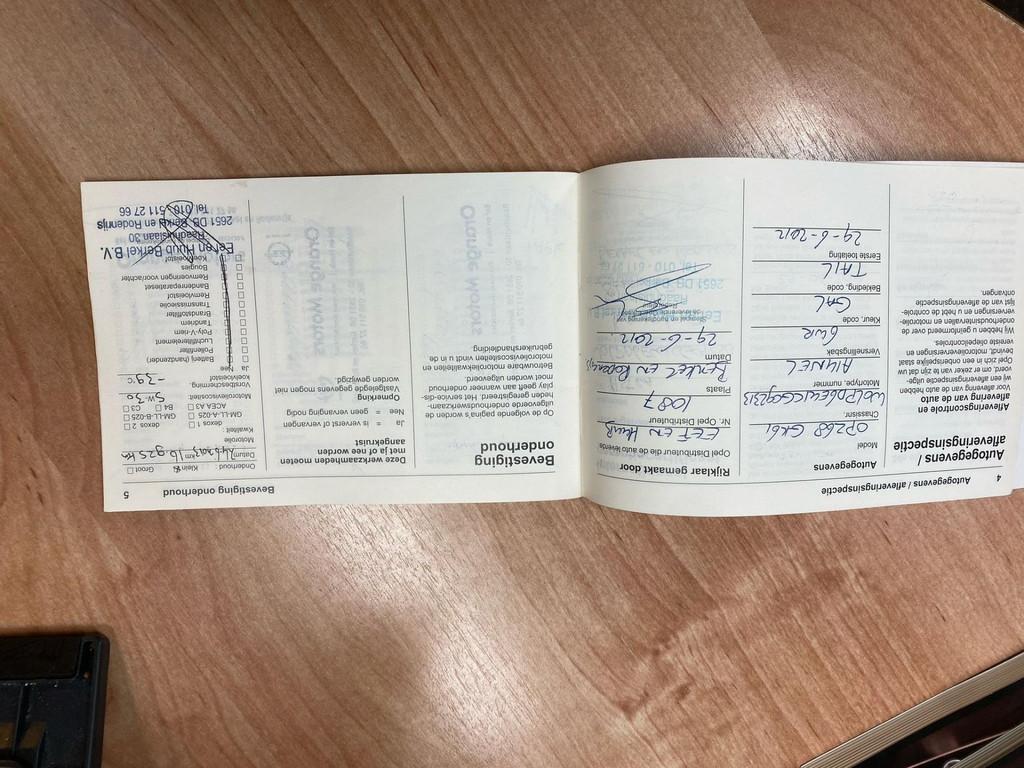 4 Autogegevens / afleveringsinspectie
Autogegevens /
afleveringsinspectie
Afleveringscontrole en
aflevering van de auto
Voor de aflevering van de auto hebben
wij een afleveringsinspectie uitge-
voerd, om er zeker van te zijn dat uw
Opel zich in een onberispelijke staat
bevindt, motorolieverversingen en
vereiste vloeistofcontroles inbegrepen.
Wij hebben u geïnformeerd over de
onderhoudsintervallen en motorolie-
specificaties en u hebt de controle-
lijst van de afleveringsinspectie
ontvangen.
Autogegevens
Model
OP268 GK61
Chassisnr.
Motortype, nummer
A14NEL
Versnellingsbak
6WR
Kleur, code
GAL
Bekleding, code
TAIL
Eerste toelating
29-6-2012
Rijklaar gemaakt door
Opel Distributeur die de auto leverde
EEF EN HUUB
Nr. Opel Distributeur
1087
Plaats
BERKEL EN RODENRIJS
Datum
29-6-2012
Bevestiging onderhoud 5
Bevestiging
onderhoud
Op de volgende pagina's worden de
uitgevoerde onderhoudswerkzaam-
heden geregistreerd. Het service-dis-
play geeft aan wanneer onderhoud
moet worden uitgevoerd.
Betrouwbare motoroliekwaliteiten en
motorolieviscositeiten vindt u in de
gebruikershandleiding.
Deze werkzaamheden moeten
met ja of nee worden
aangekruist
Ja = is ververst of vervangen
Nee = geen vervanging nodig
Opmerking
Vastgelegde gegevens mogen niet
worden gewijzigd.
Onderhoud: Klein Groot
Datum km
Motorolie
Kwaliteit:
dexos 1 dexos 2
GM-LL-A-025 GM-LL-B-025
ACEA A3 B4 C3
Motorolieviscositeit:
5w-30
Vorstbescherming
koelvloeistof -39°C
Ja Nee
Batterij (handzender)
Pollenfilter
Luchtfilterelement
Poly-V-riem
Tandriem
Brandstoffilter
Transmissieolie
Remvloeistof
Bandenreparatieset
Remvoeringen voor/achter
Bougies
Koelvloeistof
Eef en Huub Berkel B.V.
Raadhuislaan 30
2651 DB Berkel en Rodenrijs
Tel. 010 - 511 27 66